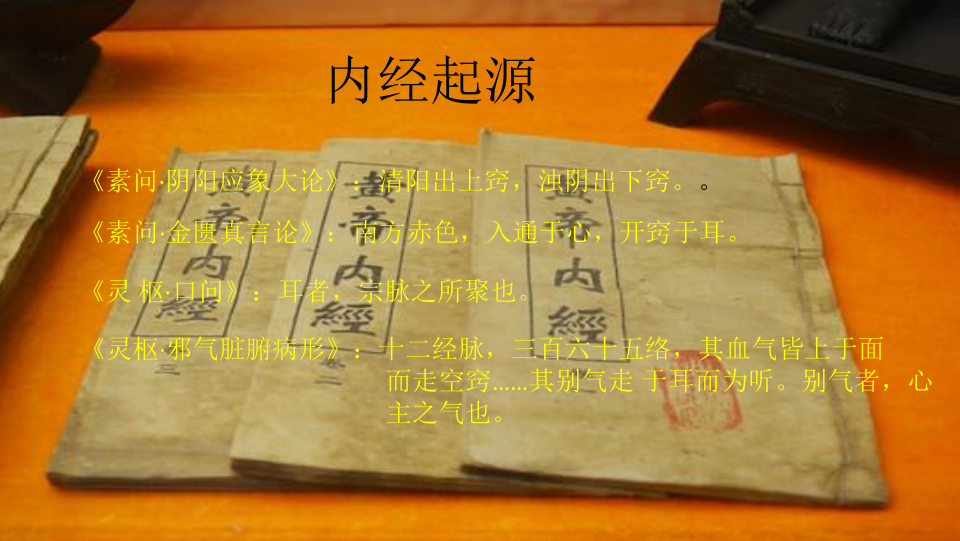 内经起源
《素问·阴阳应象大论》：清阳出上窍，浊阴出下窍。。
《素问·金匮真言论》：南方赤色，入通于心，开窍于耳。
《灵 枢·口问》：耳者，宗脉之所聚也。
《灵枢·邪气脏腑病形》：十二经脉，三百六十五络，其血气皆上于面
而走空窍......其别气走 于耳而为听。别气者，心
主之气也。
黄帝内經
三
黄帝内經
卷二
黄帝内經